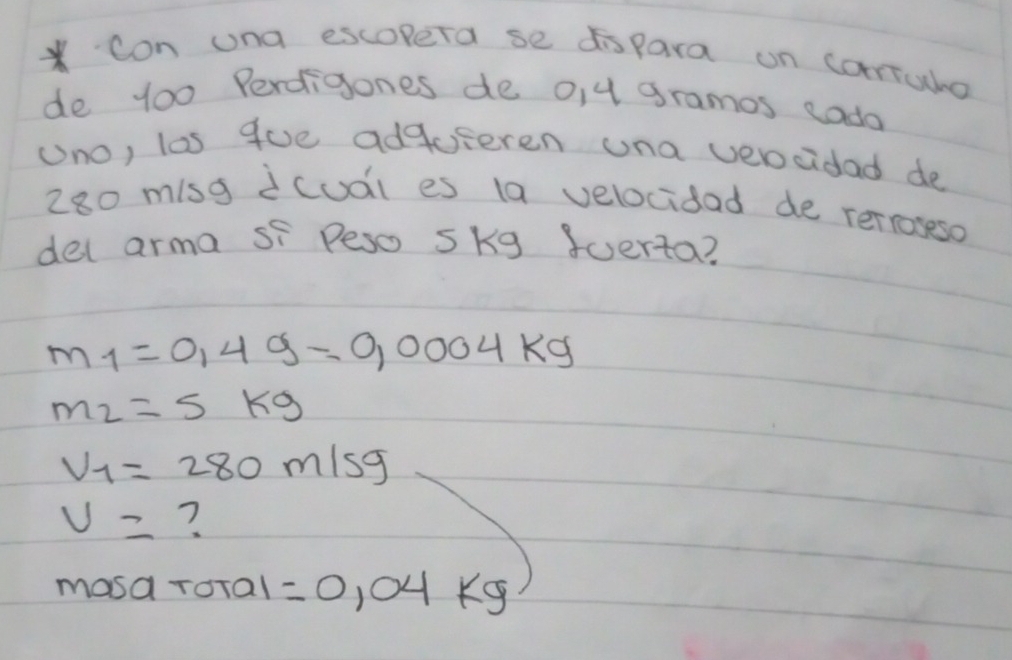 * Con una escopeta se dispara un cartucho
de 100 Perdigones de 0,4 gramos cada
uno, los que adquieren una velocidad de
280 m/sg ¿cuál es la velocidad de retroceso
del arma si Peso 5 Kg fuerza?
m1 = 0,4 g = 0,0004 Kg
m2 = 5 Kg
V1 = 280 m/sg
V = ?
masa total = 0,04 Kg